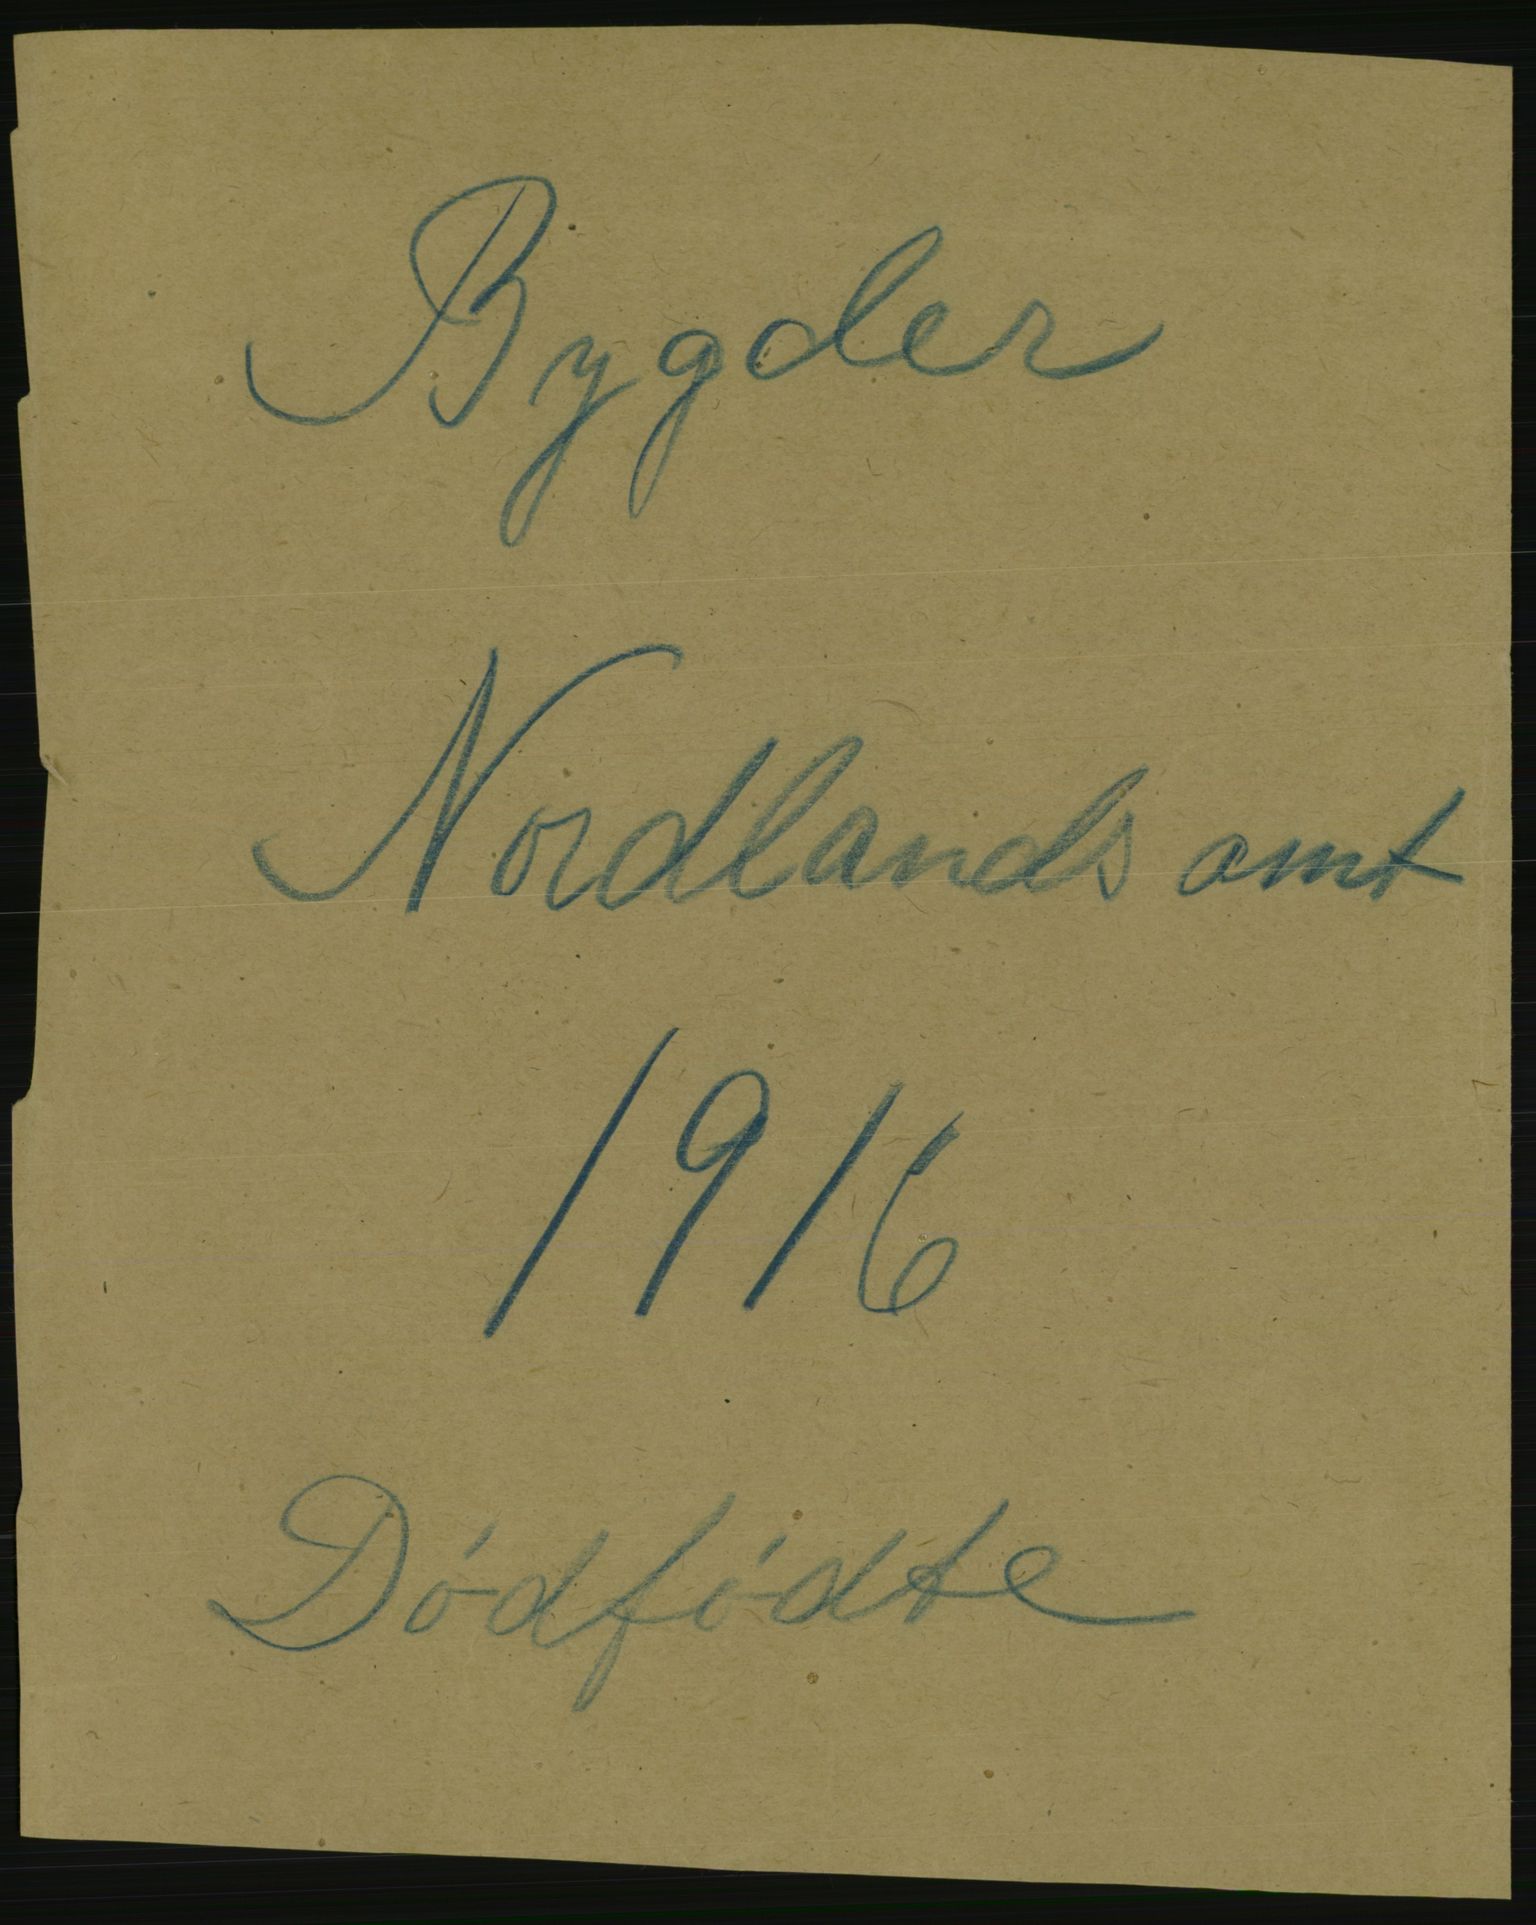 Bygder
Nordlands amt
1916
Dódfódte